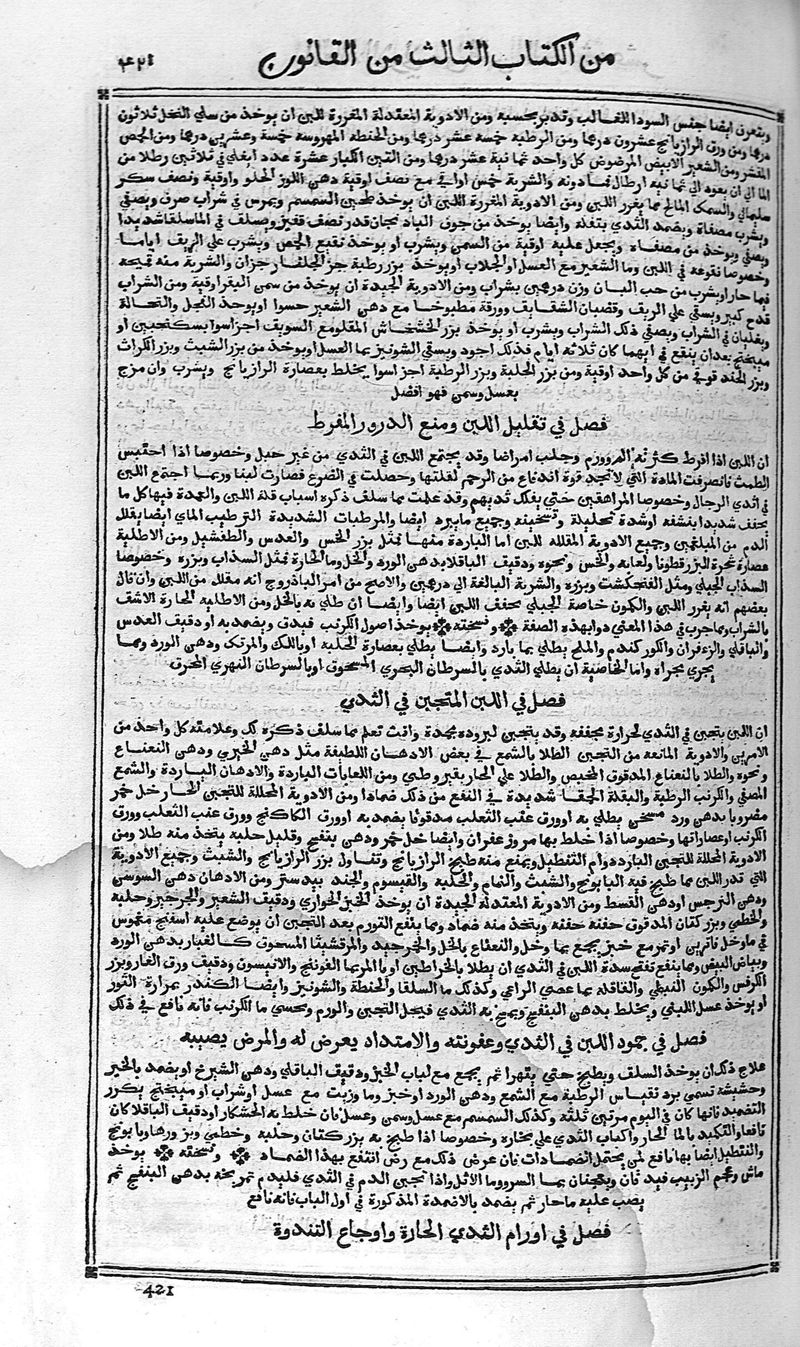 من الكتاب الثالث من القانون
٤٢١
ويتعرف ايضا جنس السودا الغالب وتدبر بحسبه ومن الادوية المعتدلة المغزرة للبن ان يوخذ من سلي النخل ثلاثون
درهما ومن ورق الرازيانج عشرون درهما ومن الرطبة خمسة عشر درهما ومن الحنطة المهروسة خمسة وعشرين درهما ومن الحمص
المقشر ومن الشعير الابيض المرضوض كل واحد ثمانية عشر درهما ومن التين الكبار عشرة عدد ايغلي في ثلاثين رطلا من
الما الي ان يعود الي ثمانيه ارطال فمادونه والشربة خمس اواقي مع نصف اوقية دهن اللوز الحلو واوقية ونصف سكر
سلماني والسمك المالح مما يغزر اللبن ومن الادوية المغزرة للبن ان يوخذ طحين السمسم ويمرس في شراب صرف ويصفي
ويشرب مصفاة ويضمد الثدي بثفله وايضا يوخذ من جوف الباذنجان قدر نصف قفيز ويصلق في الماسلقا شديدا
ويصفي ويوخذ من مصفاه ويجعل عليه اوقية من السمن ويشرب او يوخذ نقيع الحمص ويشرب علي الريق اياما
وخصوصا نقوعه في اللبن وما الشعير مع العسل او الجلاب او يوخذ بزر رطبة جز الجلنار جزان والشربة منه قمحة
فيما حار او يشرب من حب البان وزن درهمين بشراب ومن الادوية الجيدة ان يوخذ من سمن البقر اوقية ومن الشراب
قدح كبير ويسقي علي الريق وقضبان الشقايق وورقه مطبوخا مع دهن الشعير حسوا او يوخذ الفجل والنخالة
ويغليان في الشراب ويصفي ذلك الشراب ويشرب او يوخذ بزر الخشخاش المقلو مع السويق اجزا سوا بسكنجبين او
ميبختج بعد ان ينقع في ايهما كان ثلاثه ايام فذلك اجود ويسقي الشونيز بما العسل او يوخذ من بزر الشبث وبزر الكراث
وبزر الحندقوقي من كل واحد اوقية ومن بزر الحلبة وبزر الرطبة اجزا سوا يخلط بعصارة الرازيانج ويشرب وان مزج
بعسل وسمن فهو افضل
فصل في تقليل اللبن ومنع الدرور المفرط
ان اللبن اذا افرط كثرته الم وورم وجلب امراضا وقد يجتمع اللبن في الثدي من غير حبل وخصوصا اذا احتبس
الطمث فانصرفت المادة التي لا تجد قوة اندفاع من الرحم لقلتها وحصلت في الضرع فصارت لبنا وربما اجتمع اللبن
في اثدي الرجال وخصوصا المراهقين حتي يفلك ثديهم وقد علمت مما سلف ذكره اسباب قلة اللبن والعمدة فيها كل ما
يجفف شديدا بنشفه او شدة تحليلة وتسخينه وجميع ما يبرد ايضا والمرطبات الشديدة الترطيب الماي ايضا يقلل
الدم من المبلغمين وجميع الادوية المقلله للبن اما الباردة منها فمثل بزر الخس والعدس والطفشيل ومن الاطلية
عصارة شجرة البزرقطونا ولعابه والخس ونحوه ودقيق الباقلا بدهن الورد والخل وما الحارة فمثل السذاب وبزره وخصوصا
السذاب الجبلي ومثل الفنجنكشت وبزره والشربة البالغة الي درهمين والاصح من امر الباذروج انه مقلل من اللبن وان قال
بعضهم انه يغزر اللبن والكمون خاصة الجبلي يجفف اللبن ايضا وايضا ان طلي به بالخل ومن الاطليه الحارة الاشق
بالشراب ومما جرب في هذا المعني دوا بهذه الصفة ونسخته يوخذ اصول الكرنب فيدق ويضمد به او دقيق العدس
والباقلي والزعفران والكوركندم والملح يطلي بما بارد وايضا يطلي بعصارة الحلبة او باللك والمرتك ودهن الورد ومما
يجري مجراة واما الخاصية ان يطلي الثدي بالسرطان البحري المسحوق او بالسرطان النهري المحرق
فصل في اللبن المتجبن في الثدي
ان اللبن يتجبن في الثدي لحرارة مجففه وقد يتجبن لبروده مجمدة وانت تعلم مما سلف ذكره لك وعلامته كل واحد من
الامرين والادوية المانعه من التجبن الطلا بالشمع في بعض الادهان اللطيفة مثل دهن الخيري ودهن النعناع
ونحوه والطلا بالنعناع المدقوق المخبص والطلا علي الحار بقيروطي ومن اللعابات الباردة والادهان الباردة والشمع
المصفي والكرنب الرطبة والبقلة الحمقا شديدة في النفع من ذلك ضمادا ومن الادوية المحللة للتجبن الحار خل خمر
مضروبا بدهن ورد مسخن يطلي به او ورق عنب الثعلب مدقوقا يضمد به اوورق الكاكنج وورق عنب الثعلب وورق
الكرنب او عصاراتها وخصوصا اذا خلط بها مر وزعفران وايضا خل خمر ودهن بنفسج وقليل حلبه يتخذ منه طلا ومن
الادوية المحللة للتجبن البارد دوام التنطيل ويمنع منه طبيخ الرازيانج وتناول بزر الرازيانج والشبث وجميع الادوية
التي تدر اللبن مما طبخ فيه البابونج والشبث والنمام والحلبة والقيسوم والجندبيدستر ومن الادهان دهن السوسن
ودهن النرجس او دهن القسط ومن الادوية المعتدلة الجيدة ان يوخذ الخبز الحواري ودقيق الشعير والجرجير وحلبه
والخطمي وبزر كتان المدقوق حفنه حفنه ويتخذ منه ضماد ومما ينفع التورم بعد التجبن ان يوضع عليه اسفنج مغموس
في ما وخل فاترين او تمر مع خبز يجمع بما وخل والنعناع بالخل والخرجيد والمرقشيثا المسحوق كالغبار بدهن الورد
وبياض البيض ومما ينفع نفع سدة اللبن في الثدي ان يطلا بالخراطين او بالمر بما الفوتنج والانيسون ودقيق ورق الغار وبزر
الكرفس والكمون النبطي والقاقلة بما عصي الراعي وكذلك ما السلق والحنطة والشونيز وايضا الكندر بمرارة الثور
او يوخذ عسل اللبني ويخلط بدهن البنفسج ويمسح به الثدي فيحل التجبن والورم وتحسي ما الكرنب فانه نافع في ذلك
فصل في جمود اللبن في الثدي وعفونته والامتداد يعرض له والمرض يصيبه
علاج ذلك ان يوخذ السلق ويطبخ حتي يتهرا ثم يجمع مع لباب الخبز ودقيق الباقلي ودهن الشيرج او يضمد بالخبر
وحشيشة تسمي برد نقياس الرطبة مع الشمع ودهن الورد او خبز وما وزيت مع عسل او شراب او ميبختج يكرر
التضميد بانها كان في اليوم مرتين ثلثه وكذلك السمسم مع عسل وسمن وعسل فان خلط به الخشكار او دقيق الباقلا كان
نافعا والتكميد بالما الحار واكباب الثدي علي بخاره وخصوصا اذا طبخ به بزر كتان وحلبه وخطمي وبزورها وبابونج
والتنطيل ايضا بها نافع لمن يحتمل الضمادات فان عرض ذلك مع رض انتفع بهذا الضماد ونسخته يوخذ
ماش وعجم الزبيب فيدقان ويعجنان بما السرو وما الاثل واذا تجبن الدم في الثدي فليدم تمريخه بدهن البنفسج ثم
يصب عليه ما حار ثم يضمد بالاضمدة المذكورة في اول الباب فانه نافع
فصل في اورام الثدي الحارة واوجاع الثندوة
421